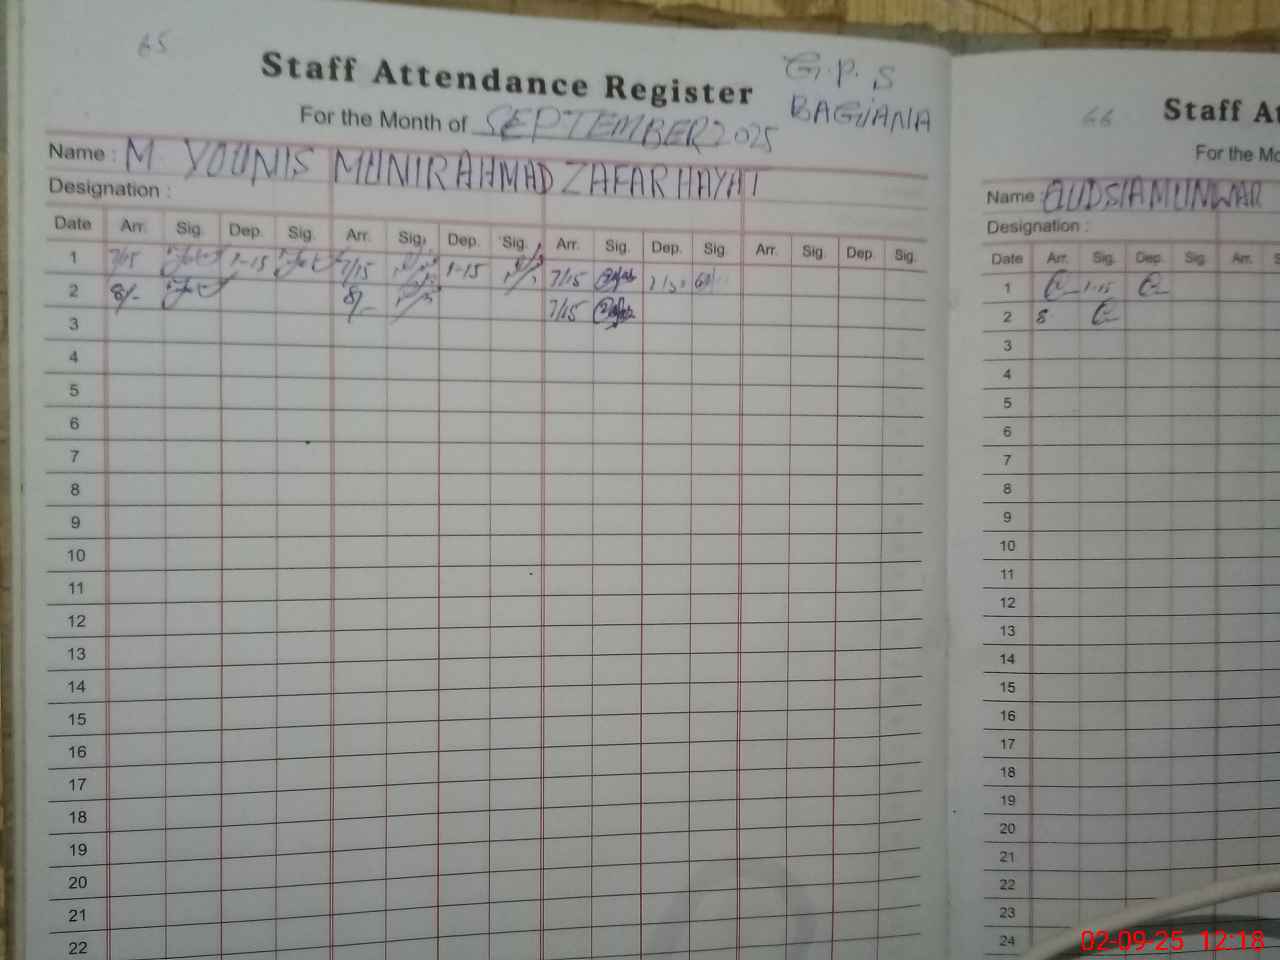 65
Staff Attendance Register
G.P.S
BAGIANA
For the Month of SEPTEMBER 2025
Name : M YOUNIS MUNIR AHMAD ZAFAR HAYAT
Designation :
Date Arr. Sig. Dep. Sig. Arr. Sig. Dep. Sig. Arr. Sig. Dep. Sig. Arr. Sig. Dep. Sig.
1 7/15 1-15 7/15 1-15 7/15
2 8/- 8/- 7/15
3
4
5
6
7
8
9
10
11
12
13
14
15
16
17
18
19
20
21
22
66
Staff At
For the Mo
Name : QUDSIA MUNWAR
Designation :
Date Arr. Sig. Dep. Sig. Arr. S
1 1-15
2 8
3
4
5
6
7
8
9
10
11
12
13
14
15
16
17
18
19
20
21
22
23
24
02-09-25 12:18